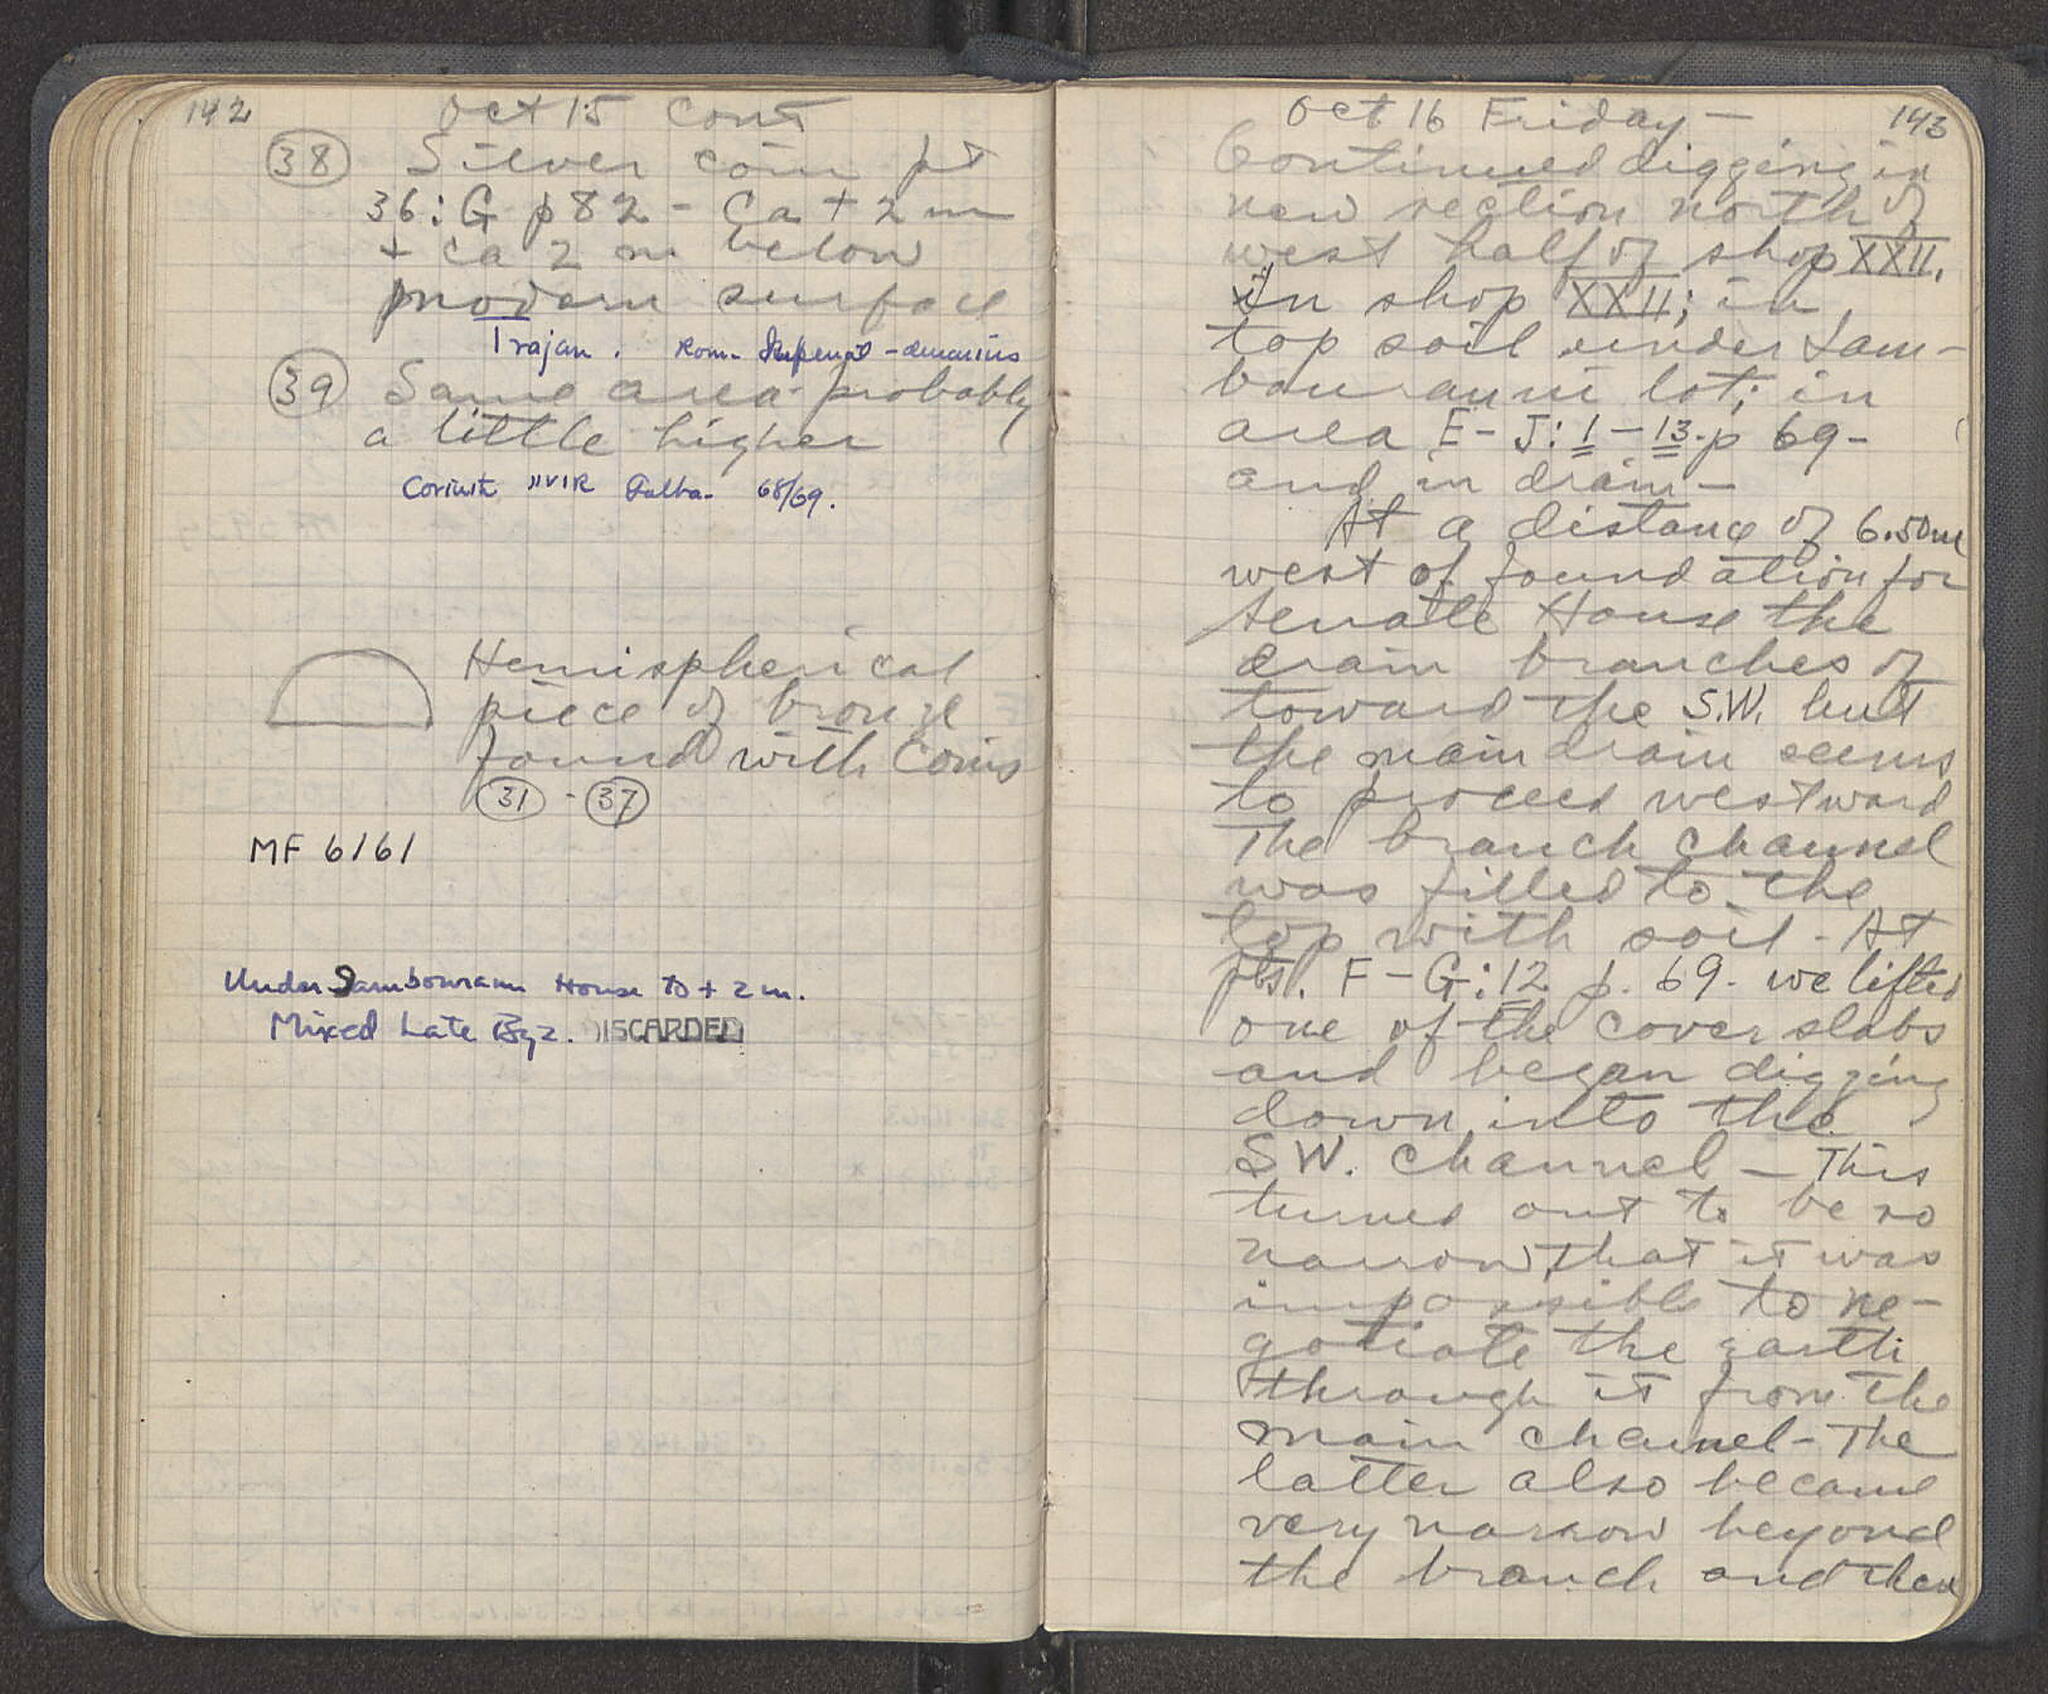 142
Oct 15 Cont
38 Silver coin pt
36:G p82 - Ca + 2 m
+ ca 2 m below
modern surface
Trajan. Rom. Imperial - denarius
39 Same area probably
a little higher
Corinth IIVIR Galba - 68/69.
Hemispherical
piece of bronze
found with Coins
31 - 37
MF 6161
Under Lambouranni House to + 2 m.
Mixed Late Byz. DISCARDED
Oct 16 Friday - 143
Continued digging in
new section north of
west half of shop XXII.
in shop XXII; in
top soil under Lam-
bouranni lot; in
area E - J: 1 - 13 - p 69 -
and in drain -
At a distance of 6.50m
west of foundation for
Senate House the
drain branches of
toward the S.W. but
the main drain seems
to proceed westward
The branch channel
was filled to the
top with soil - At
pts. F - G: 12 p. 69 - we lifted
one of the cover slabs
and began digging
down into the
SW. channel - This
turned out to be so
narrow that it was
impossible to ne-
gotiate the earth
through it from the
main channel - The
latter also became
very narrow beyond
the branch and then